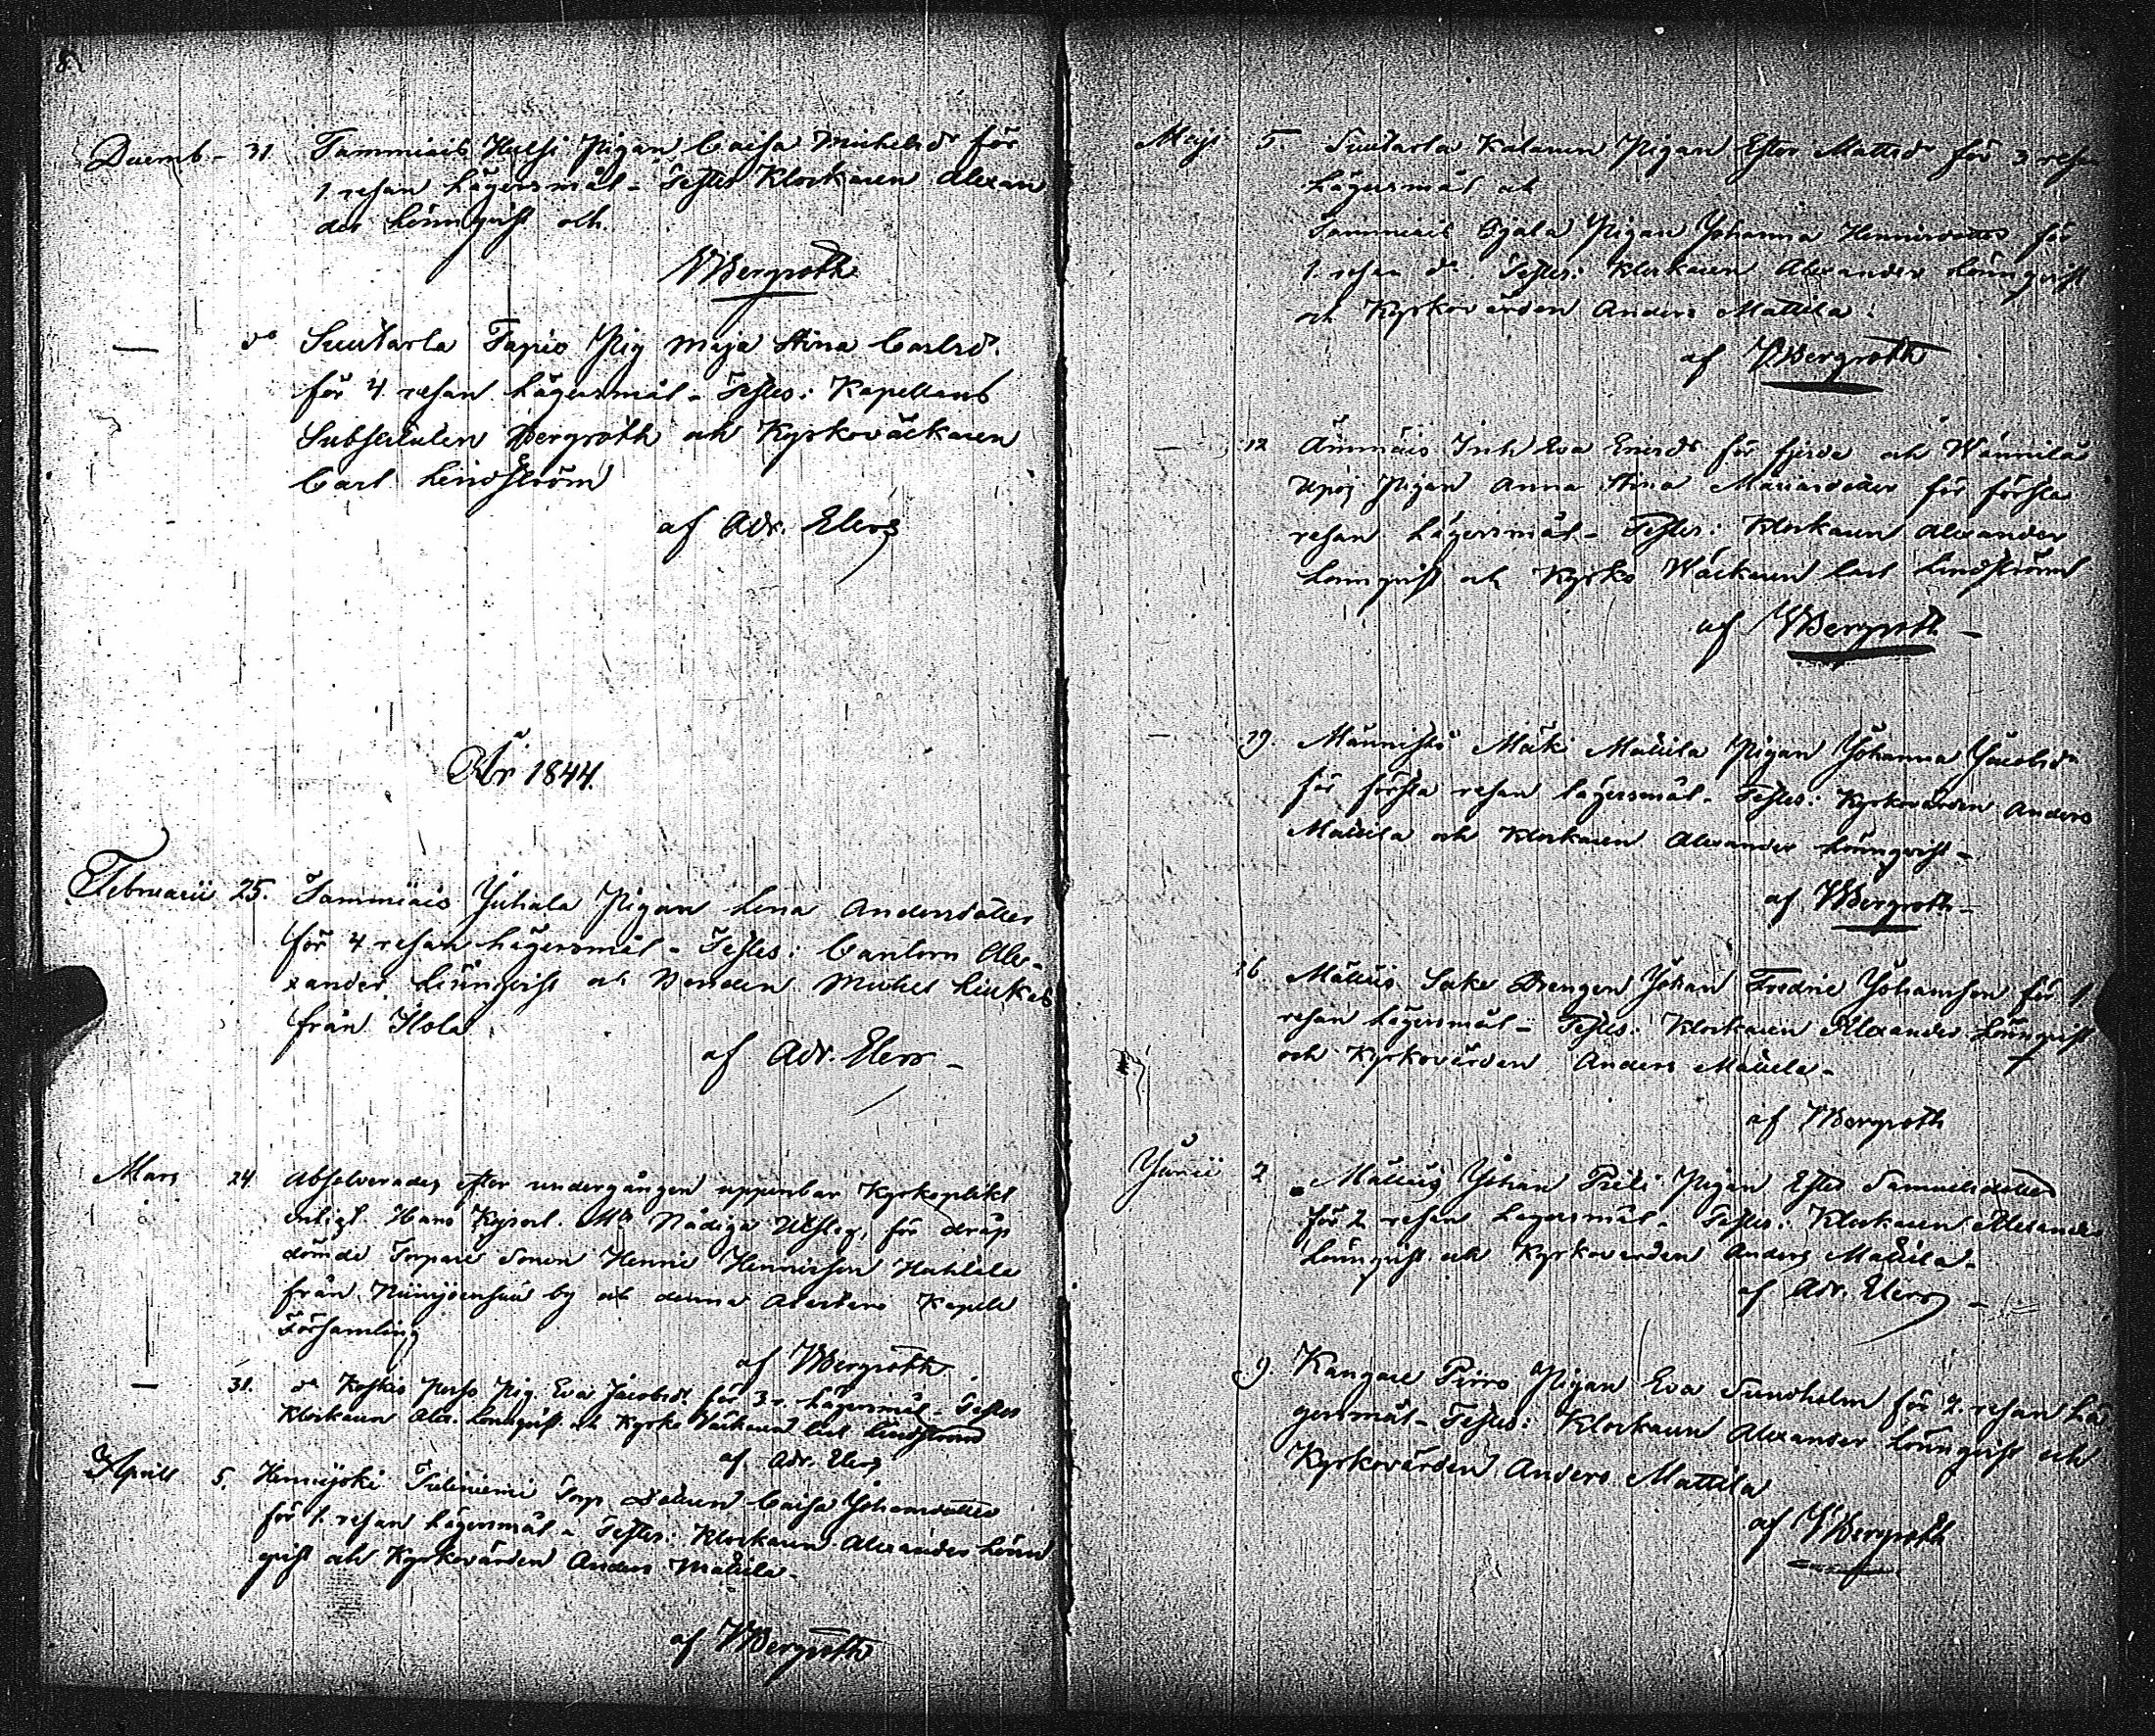 8.
Decemb - 31. Tammiais Huhsi Pigan Caisa Michelsdr för
1 resan Lägersmål - Testes Klockaren Alexan
der Lönnqvist och
VBergroth
— do Suutarla Tapio Pig Maja Stina Carlsdr.
för 4 resan Lägersmål - Testes: Kapellans
Substituten Bergroth och Kyrkoväckaren
Carl Lindström
af Adr. Elers
År 1844.
Februarii 25. Tammiais Juhala Pigan Lena Andersdotter
för 4 resan Lägersmål - Testes: Cantorn Alex-
xander Lönnqvist och Bonden Michel
från Ilola
af Adr. Elers -
Mars 24 Absolverades efter undergången uppenbar Kyrkoplikt
enligt Hans Kejserl. Mts Nådiga Utslag, för dråp
dömde Torpare Sonen Henric Henricsson
från by och denna Kapell
Församling
af VBergroth
— 31. do Koskis Pig. Eva Jacobsdr. för 3 r. Lägersmål - Testes
Klockaren Alex. Lönnqvist och Kyrko Väckaren Carl Lindström
af Adr. Elers
Aprill 5. Hennijoki Torp Caisa Johansdotter
för 1. resan Lägersmål - Testes: Klockaren Alexander Lönn
qvist och Kyrkovärden Anders Mattila -
af VBergroth
Maji 5. Suutarla Kalanen Pigan Ester Mattsdr för 3 resan
Lägersmål och
Tammiais Ojala Pigan Johanna Henricsdotter för
1. resan do. Testes: Klockaren Alexander Lönnqvist
och Kyrkovärden Anders Mattila.
af VBergroth
— 12 Ämmäis Inh Eva Ericsdr för fjerde och Wännilä
Pigan Anna Stina Mariasdotter för första
resan Lägersmål - Testes: Klockaren Alexander
Lönnqvist och Kyrko Wäckaren Carl Lindström
af VBergroth -
— 19. Männistö Mäki Mattila Pigan Johanna Jacobsdr
för första resan lägersmål - Testes: Kyrkovärden Anders
Mattila och Klockaren Alexander Lönnqvist -
af VBergroth -
26 Sake Drengen Johan Fredric Johansson för 1
resan Lägersmål - Testes: Klockaren Alexander Lönnqvist
och Kyrkovärden Anders Mattila -
af VBergroth
Junii 2 Johan Pigan Ester Samuelsdotter
för 2 resan Lägersmål - Testes: Klockaren Alexander
Lönnqvist och Kyrkovärden Anders Mattila -
af Adr. Elers -
9. Kangare Pirro Pigan Eva Sundholm för 4. resan Lä
gersmål - Testes: Klockaren Alexander Lönnqvist och
Kyrkovärden Anders Mattila
af VBergroth